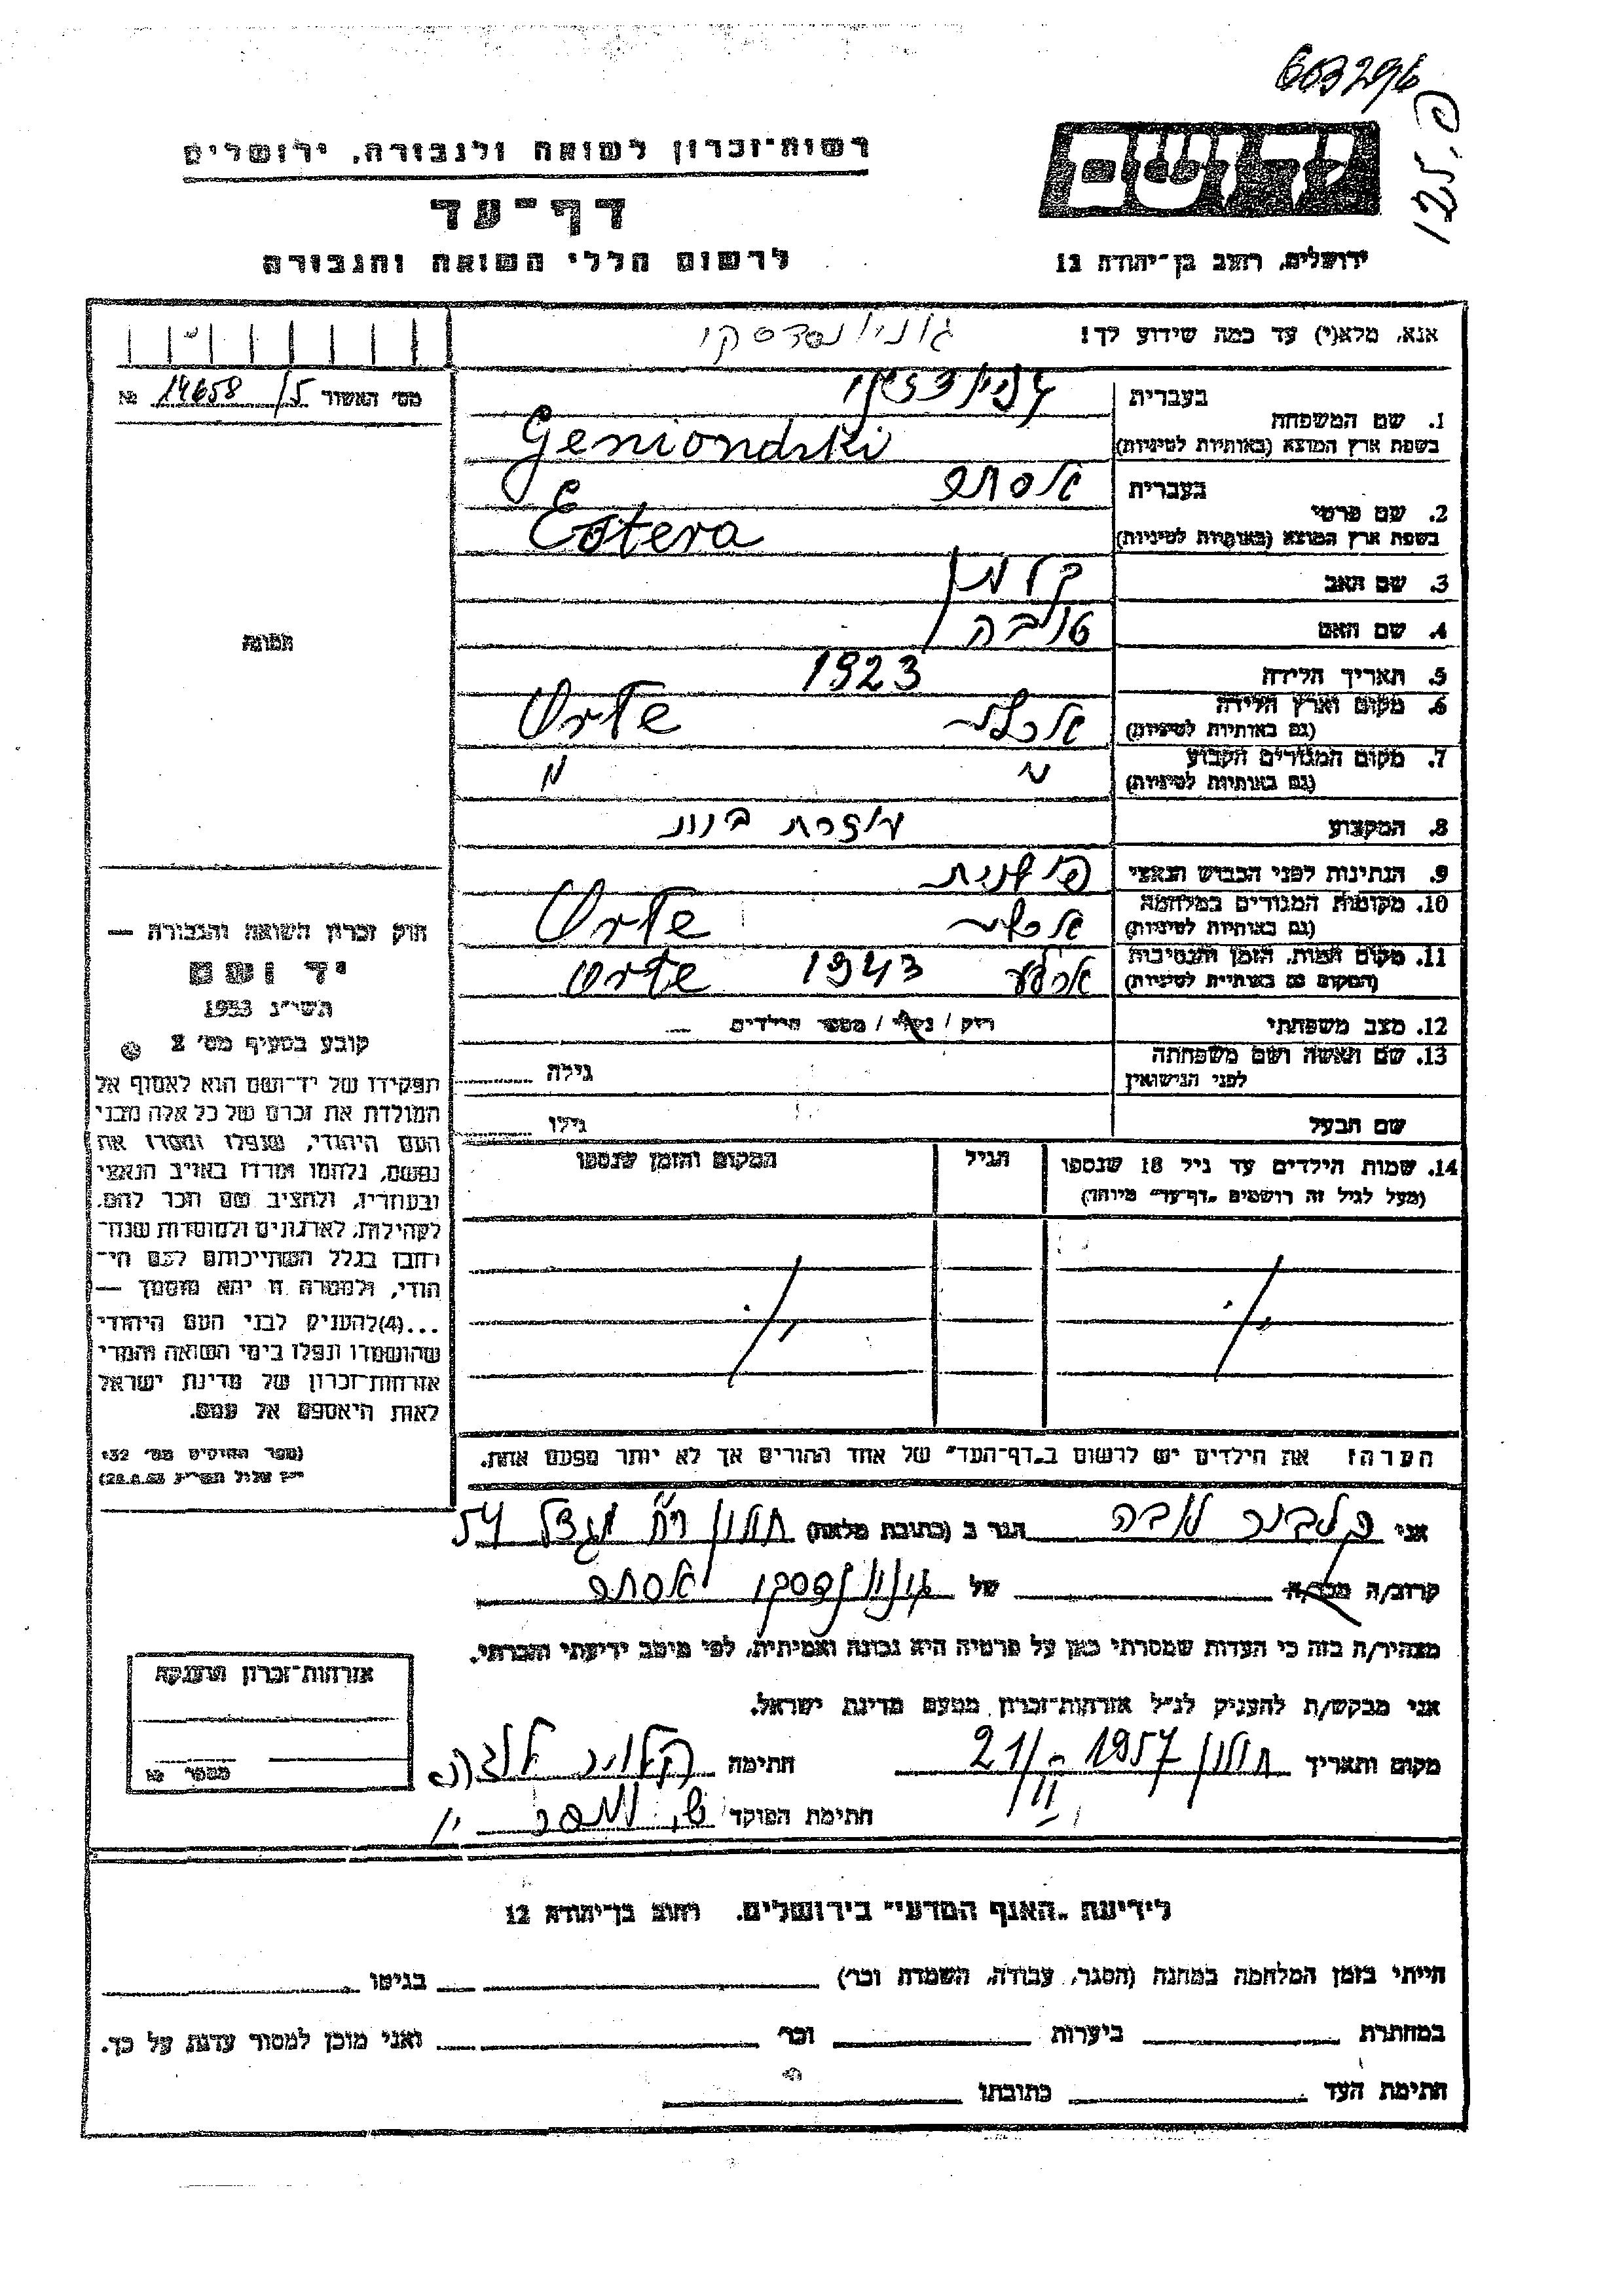 603296
125
רשות־זכרון לשואה ולגבורה, ירושלים
דף־עד
לרשום חללי השואה והגבורה
יד ושם
ירושלים, רחוב בן־יהודה 12
אנא, מלא(י) עד כמה שידוע לך!
גוניונדסקי
מס׳ האשור 14658/5 №
1. שם המשפחה
בעברית
בשפת ארץ המוצא (באותיות לטיניות) Geniondski
2. שם פרטי
בעברית אסתר
בשפת ארץ המוצא (באותיות לטיניות) Estera
3. שם האב
4. שם האם טובה
5. תאריך הלידה 1923
6. מקום וארץ הלידה
(גם באותיות לטיניות) Orle
7. מקום המגורים הקבוע
(גם באותיות לטיניות) " "
8. המקצוע עוזרת בית
9. הנתינות לפני הכבוש הנאצי פולנית
10. מקומות המגורים במלחמה
(גם באותיות לטיניות) Orle
11. מקום המות, הזמן והנסיבות
(המקום גם באותיות לטיניות) 1943 Orle
12. מצב משפחתי רוק / נשוי / מספר הילדים —
13. שם האשה ושם משפחתה
לפני הנישואין גילה
שם הבעל גילו
14. שמות הילדים עד גיל 18 שנספו
(מעל לגיל זה רושמים „דף־עד” מיוחד)
הגיל
המקום והזמן שנספו
תמונה
חוק זכרון השואה והגבורה —
יד ושם
תשי״ג 1953
קובע בסעיף מס׳ 2
תפקידו של יד־ושם הוא לאסוף אל
המולדת את זכרם של כל אלה מבני
העם היהודי, שנפלו ומסרו את
נפשם, נלחמו ומרדו באויב הנאצי
ובעוזריו, ולהציב שם וזכר להם,
לקהילות, לארגונים ולמוסדות שנח־
רבו בגלל השתייכותם לעם הי־
הודי, ולמטרה זו יהא מוסמך —
...(4) להעניק לבני העם היהודי
שהושמדו ונפלו בימי השואה והמרי
אזרחות־זכרון של מדינת ישראל
לאות היאספם אל עמם.
(ספר החוקים מס׳ 132
י״ז אלול תשי״ג 28.8.53)
הערה! את הילדים יש לרשום ב„דף־העד” של אחד ההורים אך לא יותר מפעם אחת.
אני הגר ב (כתובת מלאה) חולון 54
קרוב/ה מכר/ה של אסתר
מצהיר/ה בזה כי העדות שמסרתי כאן על פרטיה היא נכונה ואמיתית, לפי מיטב ידיעתי והכרתי.
אני מבקש/ת להעניק לנ״ל אזרחות־זכרון מטעם מדינת ישראל.
מקום ותאריך חולון 1957 חתימה
חתימת הפוקד
אזרחות־זכרון הוענקה
מספר №
לידיעת „האגף המדעי” בירושלים, רחוב בן־יהודה 12
הייתי בזמן המלחמה במחנה (הסגר, עבודה, השמדה וכו׳) בגיטו
במחתרת ביערות וכו׳ ואני מוכן למסור עדות על כך.
חתימת העד כתובתו